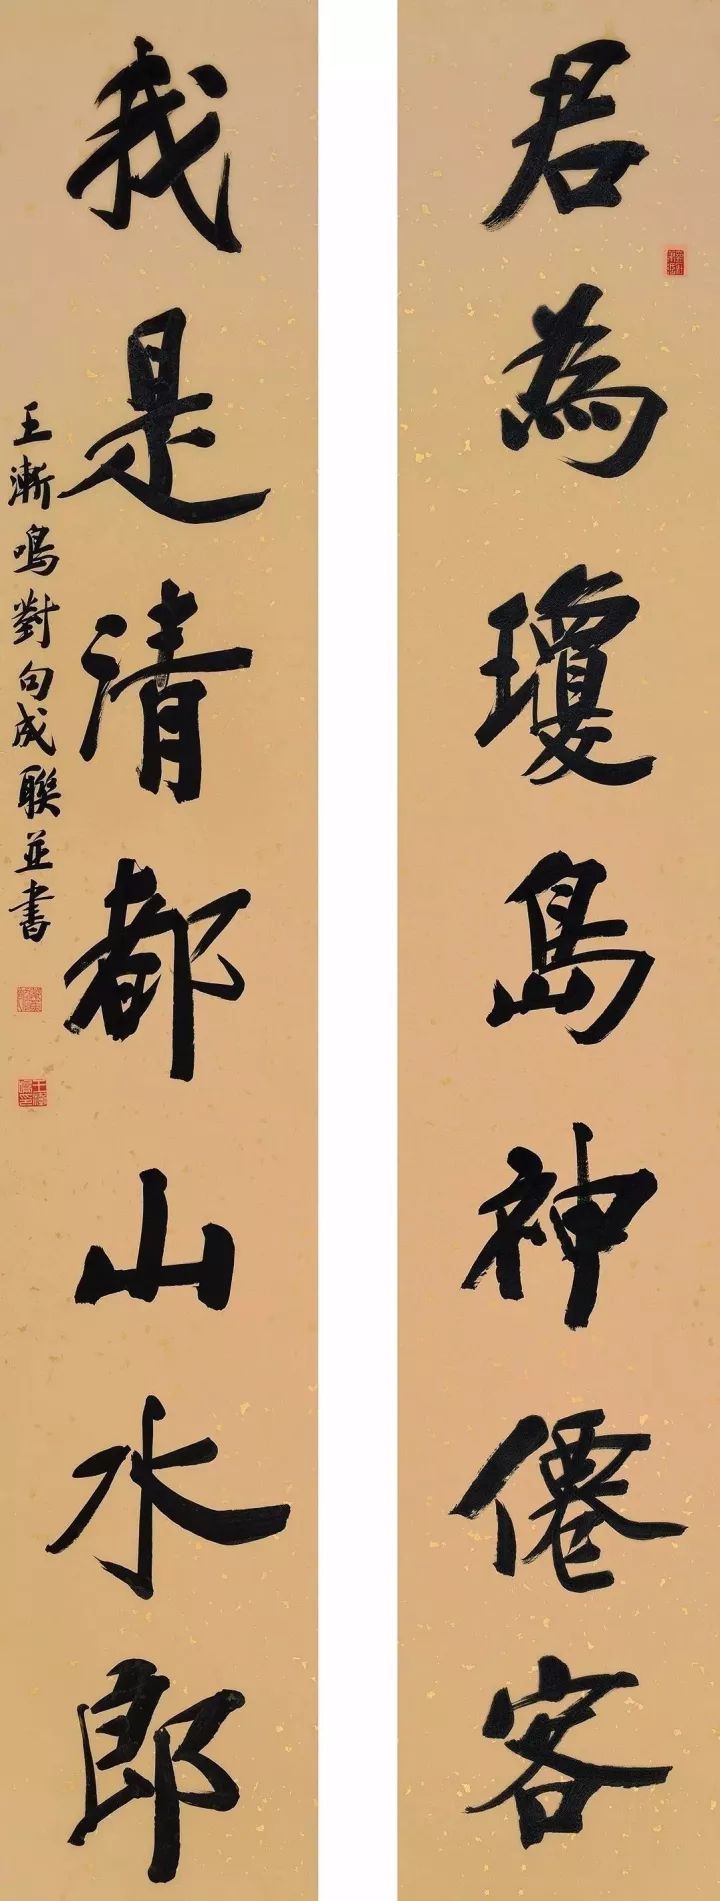 君為瓊島神僊客
我是清都山水郎
王漸鳴對句成聯並書